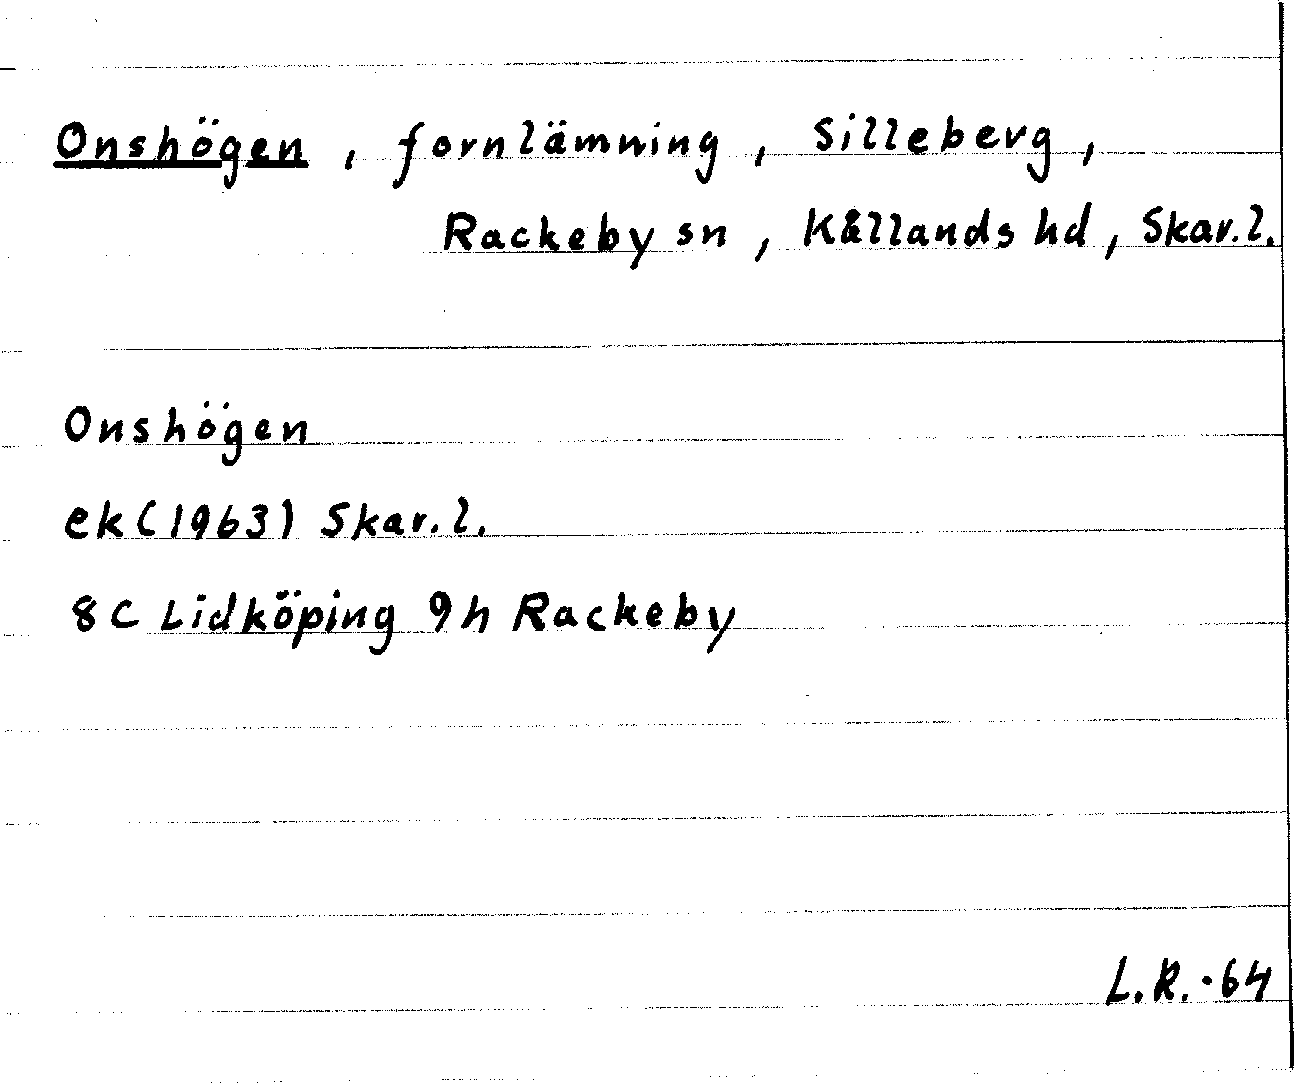 Onshögen, fornlämning, Silleberg,
Rackeby sn, Kållands hd, Skar.l.
Onshögen
ek(1963) Skar.l.
8C Lidköping 9h Rackeby
L.R.-64